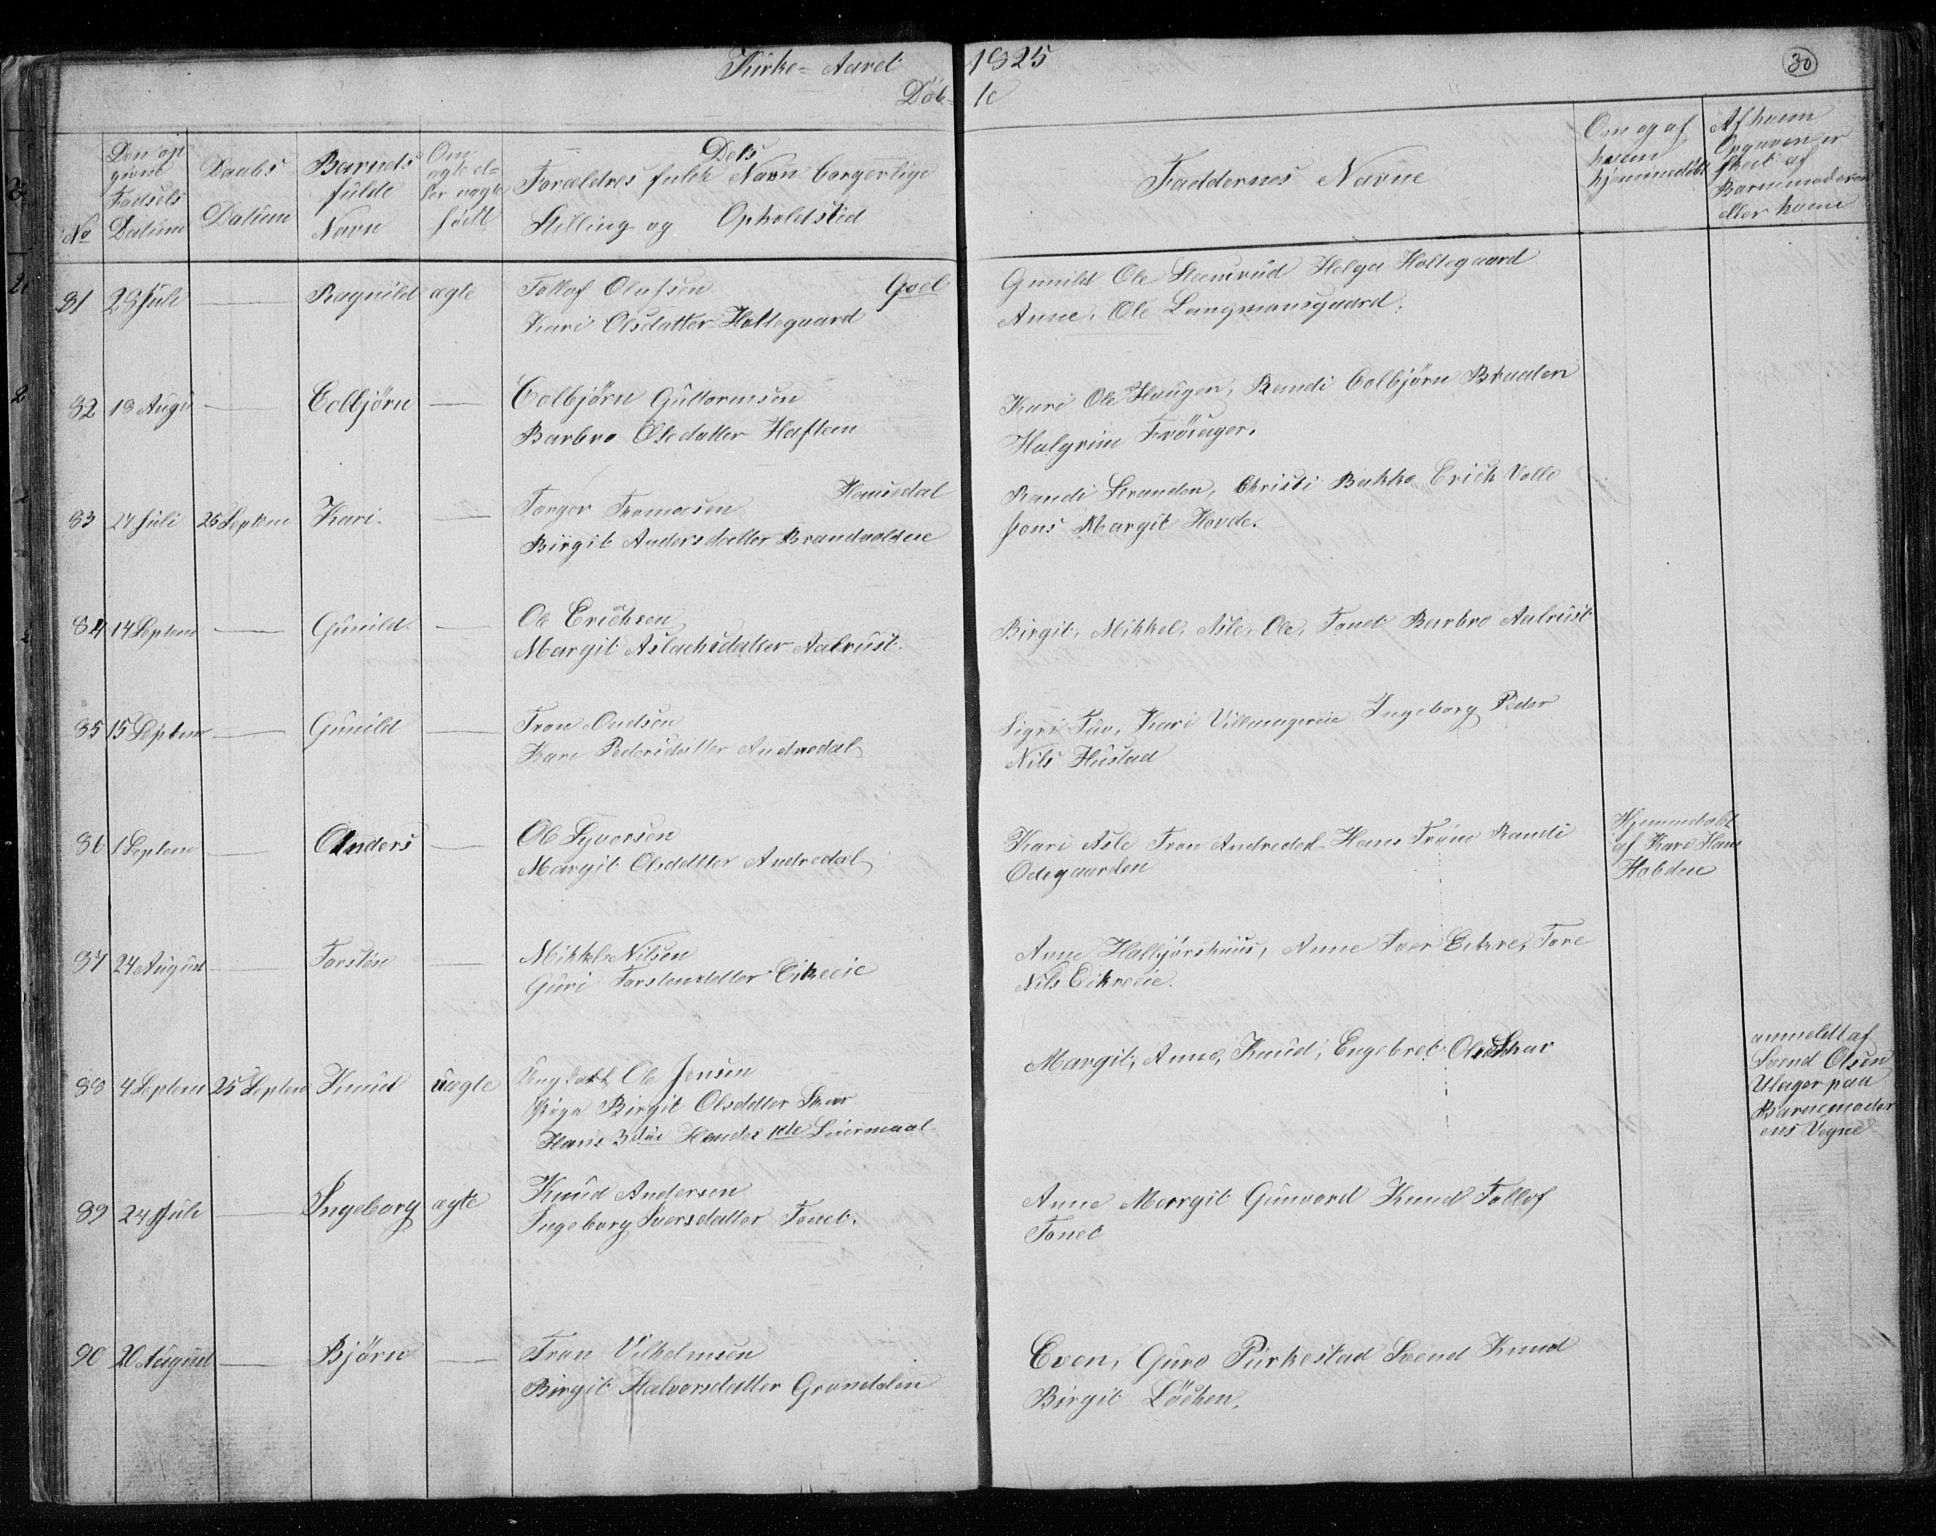 Kirke= Aaret 1825
30
Döb= te
No
Den op
givne
Födsels
Datum
Daabs
Datum
Barnets
fulde
Navn
Om
ægte el-
ler uægte
födt
Dets
Forældres fulde Navn borgerlige
Stilling og Opholdsted
Faddernes Navne
Om og af
hvem
hjemmedöbt
Af hvem
Opgaven er
skeet af
Barnemoderen
eller hvem
81 28 Juli — Ragnild ægte Tollof Olufsen Goel
Kari Olsdatter Holtegaard
Gunild Ole Steensrud Helga Holtegaard
Anne, Ole Langmansgaard.
82 13 Augu — Colbjörn — Colbjörn Guttormsen
Barbro Olsdatter Haftem
Kari Ole Haugen, Randi Colbjörn Braaden
Halgrim Frösager.
83 27 Juli 25 Septem Kari. — Torger Tromasen Hemsedal
Birgit Andersdatter
Randi Stranden, Christi Bakke Erich Valle
Jons Margit Horde.
84 14 Septem — Gunild — Ole Erichsen
Margit Aslachsdatter Aalrust.
Birgit, Mikkel, Asle, Ole, Tonet Barbro Aalrust
85 15 Septem — Gunild — Tron Andsen
Kari Pedersdatter Andredal
Sigri Tuv, Kari Peder Ingeborg
Nils Hustad
86 1 Septem — Anders — Ole Syversen
Margit Olsdatter Andredal
Kari Asle Tron Andredal Hans Trône Randi
Odegaarden
Hjemmedöbt
af Kari Hans
87 24 August — Torsten — Mikkel Nilsen
Guri Torstensdatter Eikreeie
Anne Halbjörshuus, Anne Iver Eikre, Tore
Nils Eikreeie.
88 4 Septem 25 Septem Knud uægte Ungkarl Ole Jonsen
Pige Birgit Olsdatter Skar
Hans 3die Hendes 1ste Leiermaal
Margit, Anne, Knud, Engebret Ole Skar
anmeldt af
Svend Olsen
Ulager paa
Barnemoder
ens Vegne
89 24 Juli — Ingeborg ægte Knud Andersen
Ingeborg Iversdatter Tonet.
Anne Margit Gunvord Knud Tollof
Tonet
90 20 August — Björn — Tron Vilhelmsen
Birgit Halvorsdatter Gröndalen
Even, Guro Purkestad Svend Knud
Birgit Löchen.